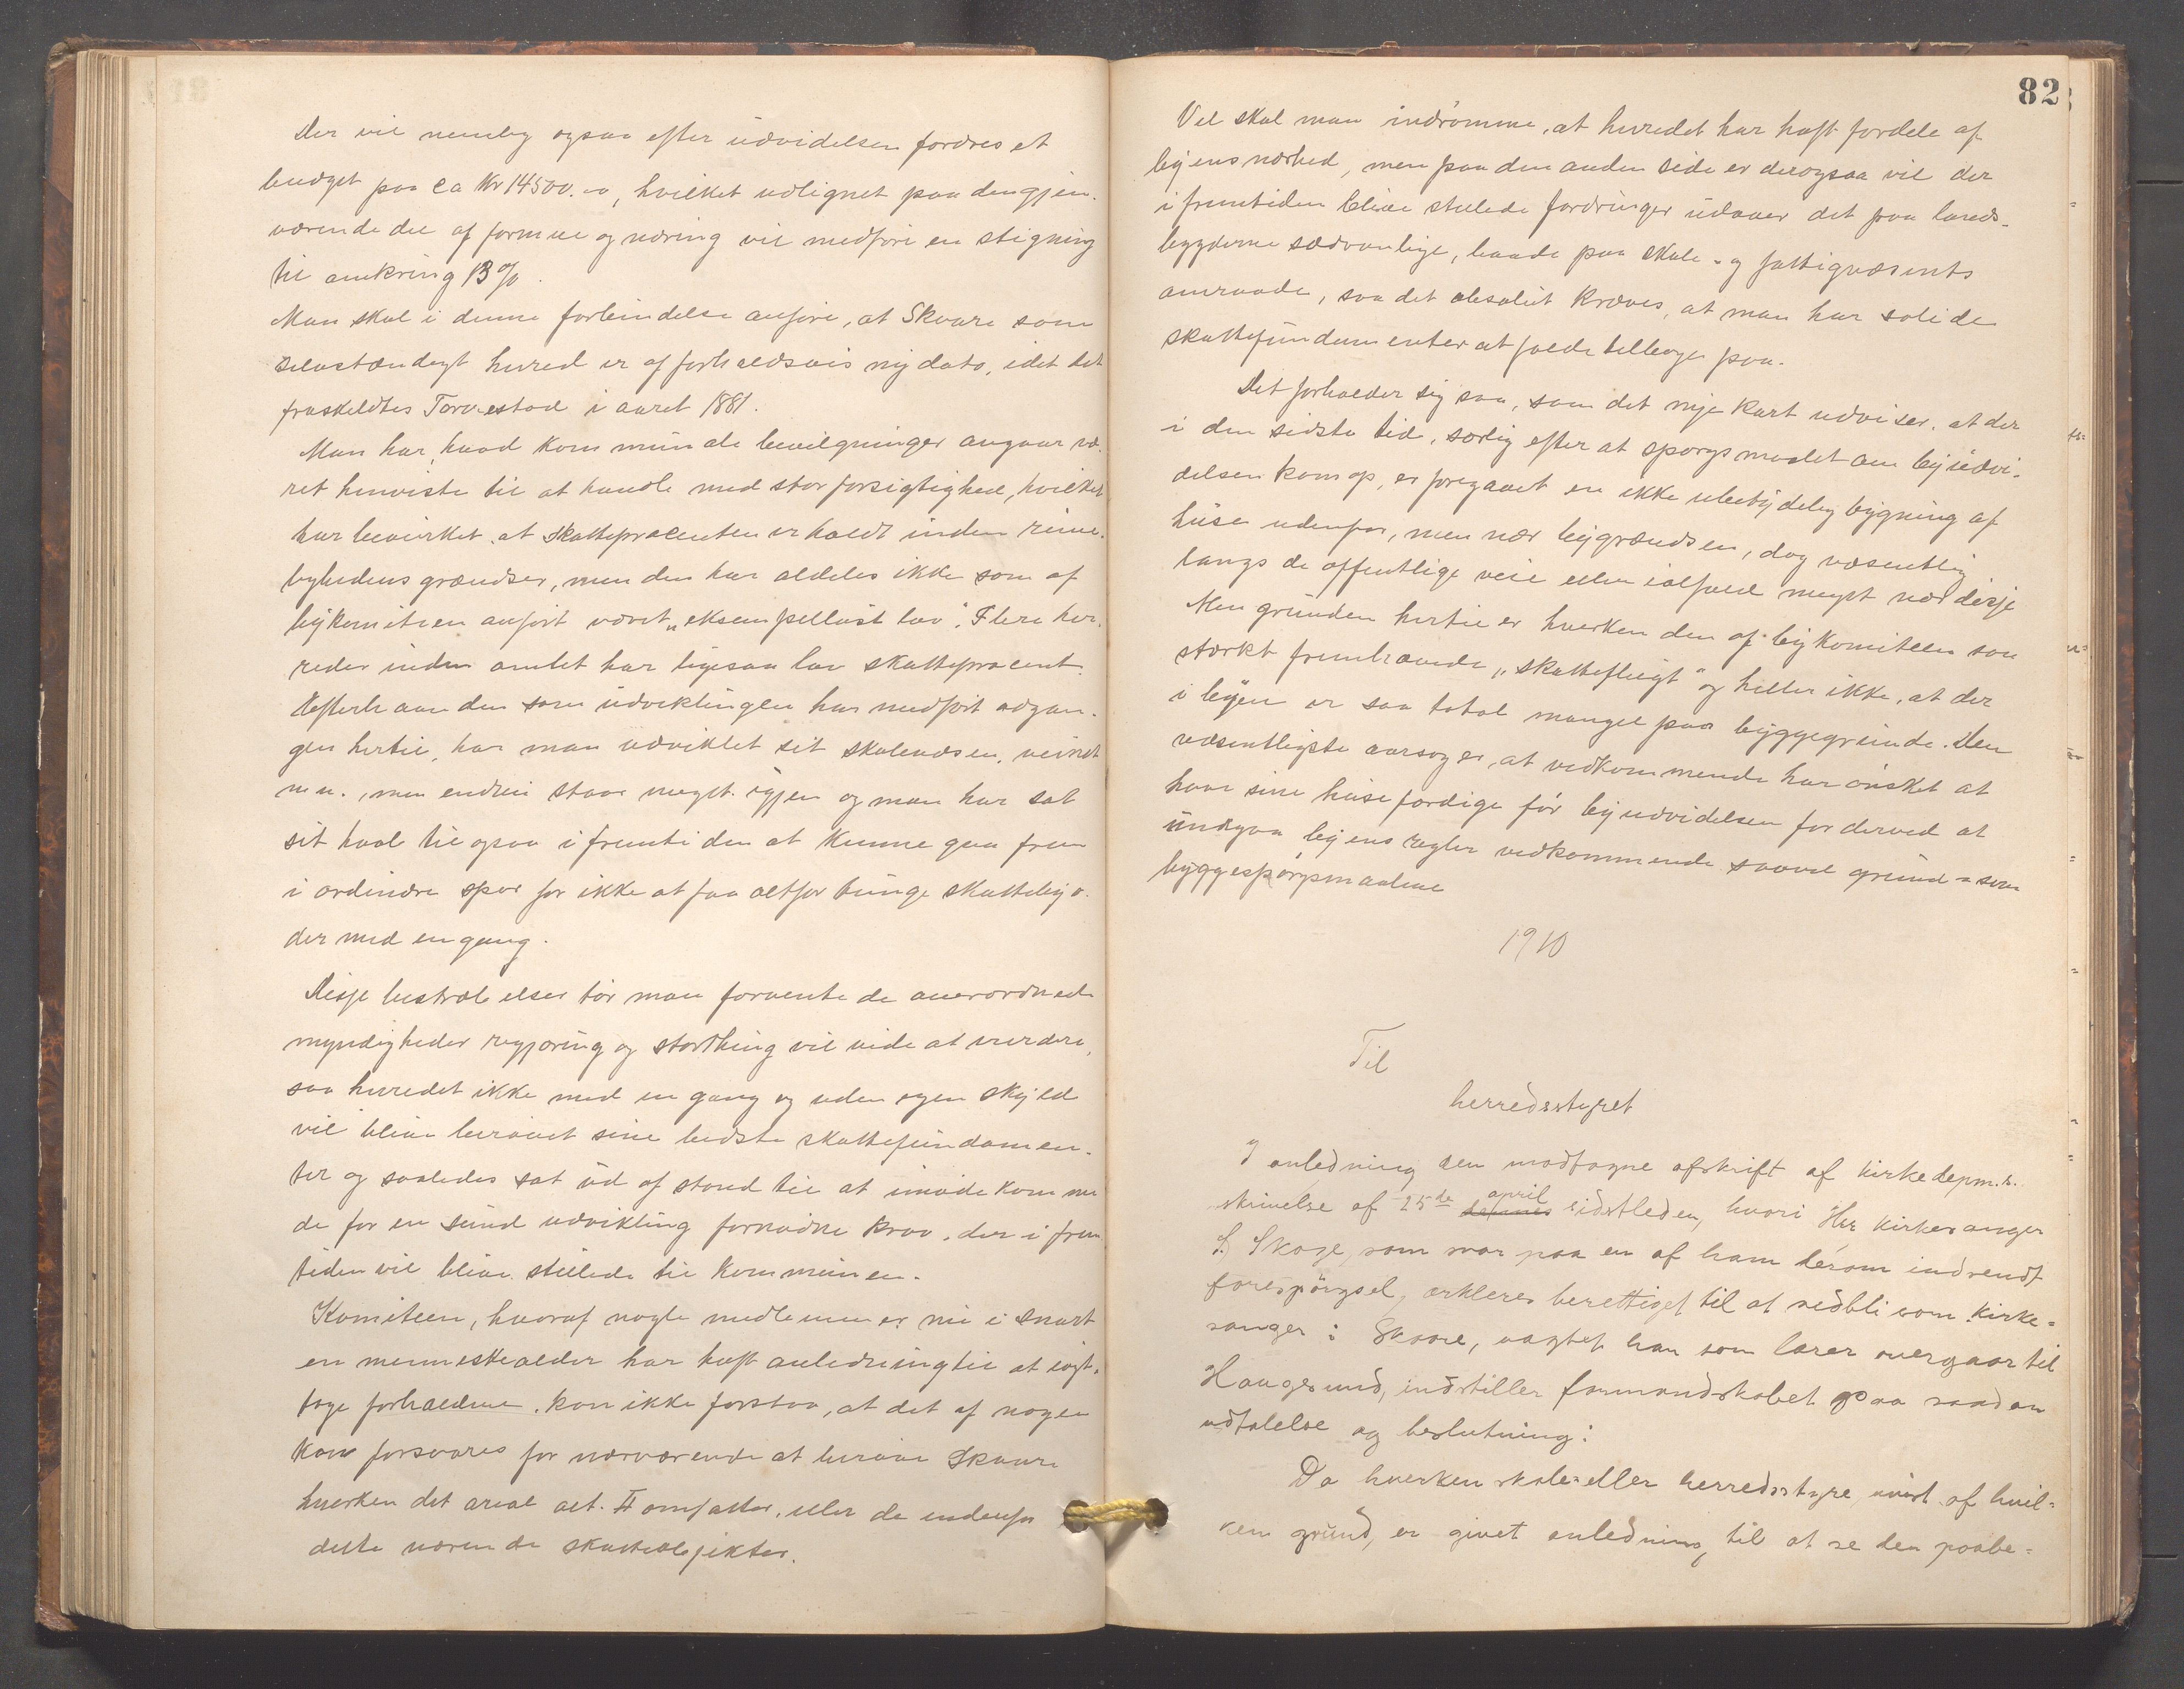 Der vil nemlig ogsaa efter udvidelsen fordres et
budget paa ca Kr 14500.00, hvilket udlignet paa den gjen-
værende del af formue og næring vil medføre en stigning
til omkring 13 %.
Man skal i denne forbindelse anføre, at Skaare som
selvstændigt herred er af forholdsvis ny dato, idet det
fraskildtes Torvestad i aaret 1881.
Man har, hvad kommunale bevilgninger angaar væ-
ret henviste til at handle med stor forsigtighed, hvilket
har bevirket at skatteprocenten er holdt inden rime-
lighedens grændser, men den har aldeles ikke som af
bykomiteen anført været „eksempelløst lav". Flere her-
reder inden amtet har ligesaa lav skatteprocent.
Efterhaanden som udviklingen har medført adgan-
gen hertil, har man udviklet sit skolevæsen, veivæsen
m.m., men endnu staar meget igjen og man har sat
sit haab til ogsaa i fremtiden at kunne gaa frem
i ordinære spor for ikke at faa altfor tunge skattebyr-
der med engang.
Disse bestræbelser tør man forvente de overordnede
myndigheder regjering og storthing vil vide at vurdere,
saa herredet ikke med en gang og uden egen skyld
vil blive berøvet sine bedste skattefundamen-
ter og saaledes sat ud af stand til at imødekomme
de for en sund udvikling fornødne krav, der i frem
tiden vil blive stillede til kommunen.
Komiteen, hvoraf nogle medlemmer nu i snart
en menneskealder har havt anledning til at iagt-
tage forholdene kan ikke forstaa, at det af nogen
kan forsvares for nærværende at berøve Skaare
hverken det areal alt. II omfatter, eller de indenfor
dette værende skatteobjekter.
82
Vel skal man indrømme, at herredet har havt fordele af
byens nærhed, men paa den anden side er der ogsaa vil der
i fremtiden blive stillede fordringer udover det paa lands-
bygderne sædvanlige, baade paa skole- og fattigvæsenets
omraade, saa det absolut kræves, at man har solide
skattefundamenter at falde tilbage paa.
Det forholder sig saa, som det nye kart udviser, at der
i den sidste tid, særlig efter at spørgsmaalet om byudvi-
delsen kom op, er foregaaet en ikke ubetydelig bygning af
huse udenfor, men nær bygrændsen, dog væsentlig
langs de offentlige veie eller ialfald meget nær disse
Men grunden hertil er hverken den af bykomiteen saa
stærkt fremhævede „skatteflugt" og heller ikke, at der
i byen er saa total mangel paa byggegrunde. Den
væsentligste aarsag er, at vedkommende har ønsket at
have sine huse færdige før byudvidelsen for derved at
undgaa byens regler vedkommende saavel grund- som
byggespørgsmaalene
1910
Til
herredsstyret
I anledning den modtagne afskrift af kirkedepm.s.
skrivelse af 25de april sidstleden, hvori Hr kirkesanger
S. Skoge, som svar paa en af ham derom indsendt
forespørgsel, erklæres berettiget til at vedbli som kirke-
sanger i Skaare, uagtet han som lærer overgaar til
Haugesund, indstiller formandskabet paa saadan
udtalelse og beslutning:
Da hverken skole- eller herredsstyre, uvist af hvil-
ken grund, er givet anledning til at se den paabe-